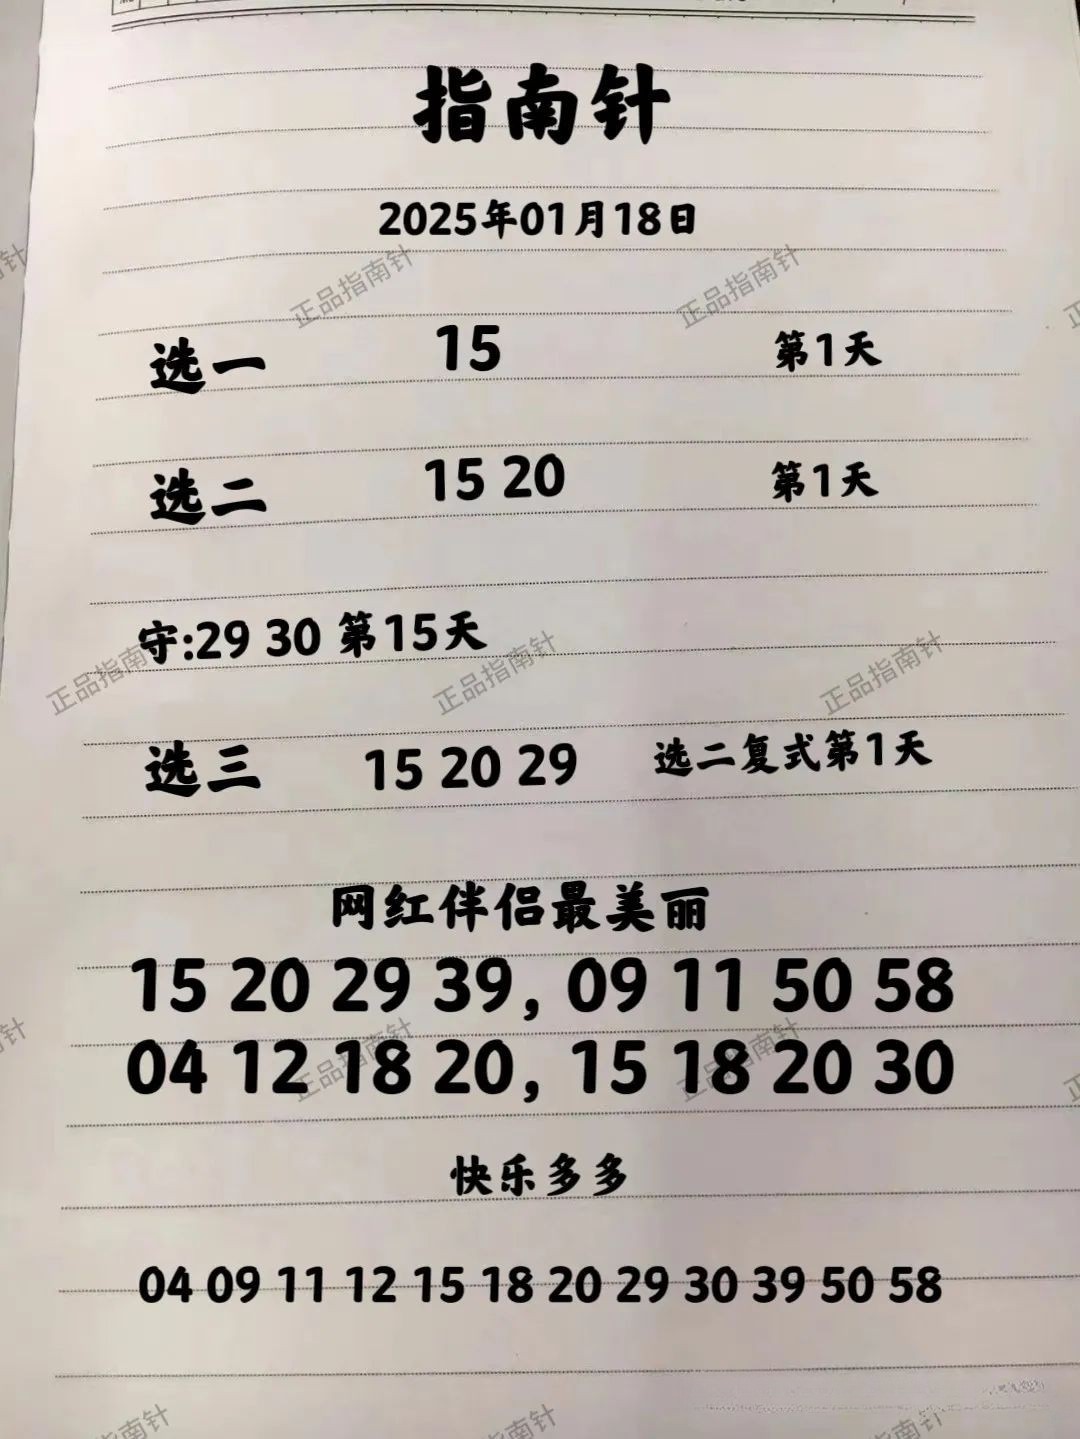 指南针
2025年01月18日
选一 15 第1天
选二 15 20 第1天
守:29 30 第15天
选三 15 20 29 选二复式第1天
网红伴侣最美丽
15 20 29 39, 09 11 50 58
04 12 18 20, 15 18 20 30
快乐多多
04 09 11 12 15 18 20 29 30 39 50 58
正品指南针